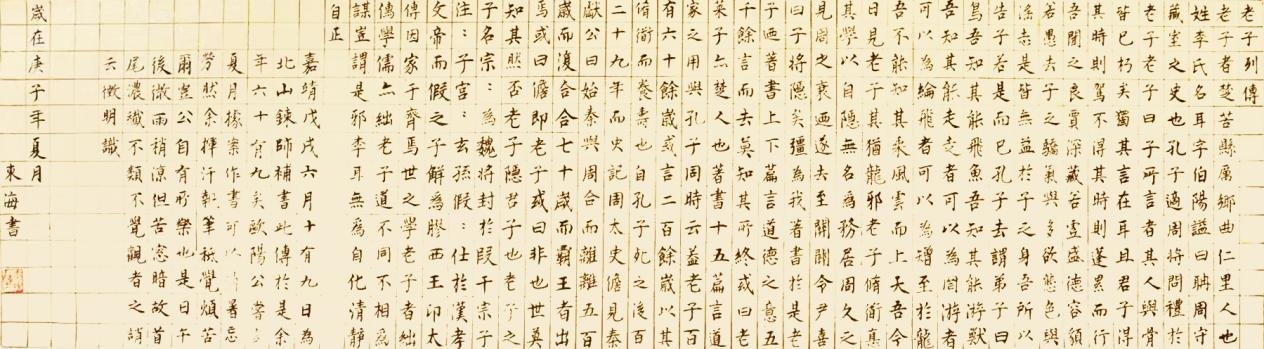 老子列傳
老子者楚苦縣厲鄉曲仁里人也
姓李氏名耳字伯陽謚曰聃周守
藏室之史也孔子適周將問禮於
老子老子曰子所言者其人與骨
皆已朽矣獨其言在耳且君子得
其時則駕不得其時則蓬累而行
吾聞之良賈深藏若虛盛德容貌
若愚去子之驕氣與多欲態色與
淫志是皆無益於子之身吾所以
告子若是而已孔子去謂弟子曰
鳥吾知其能飛魚吾知其能游獸
吾知其能走走者可以為罔游者
可以為綸飛者可以為矰至於龍
吾不能知其乘風雲而上天吾今
日見老子其猶龍邪老子脩衟惪
其學以自隱無名為務居周久之
見周之衰迺遂去至關關令尹喜
曰子將隱矣彊為我著書於是老
子迺著書上下篇言道德之意五
千餘言而去莫知其所終或曰老
萊子亦楚人也著書十五篇言道
家之用與孔子同時云蓋老子百
有六十餘歲或言二百餘歲以其
脩衟而養壽也自孔子死之後百
二十九年而史記周太史儋見秦
獻公曰始秦與周合而離離五百
歲而復合合七十歲而霸王者出
焉或曰儋即老子或曰非也世莫
知其然否老子隱君子也老子之
子名宗：為魏將封於段干宗子
注：子宮：玄孫假：仕於漢孝
文帝而假之子解為膠西王卬太
傅因家于齊焉世之學老子者絀
儒學儒亦絀老子道不同不相為
謀豈謂是邪李耳無為自化清靜
自正
嘉靖戊戌六月十有九日為
北山鍊師補書此傳於是余
年六十有九矣歐陽公嘗言
夏月據案作書可以消暑忘
勞然余揮汗執筆祇覺煩苦
爾豈公自有所樂也是日午
後微雨稍涼但苦窓暗故首
尾濃纖不類不覺觀者之誚
云徵明識
歲在庚子年夏月
東海書